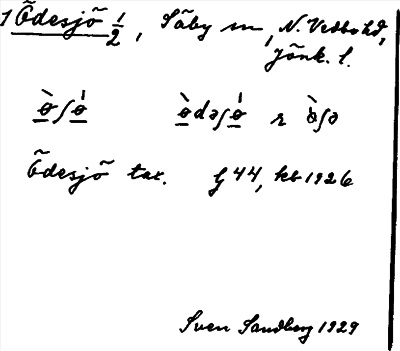 1 Ödesjö 1/2, Säby sn, N. Vedbo hd,
Jönk. l.
ø̀ʃǿ ø̀dəʃǿ r ø̀ʃə
Ödesjö tax. G 44, kb 1926
Sven Sandberg 1929